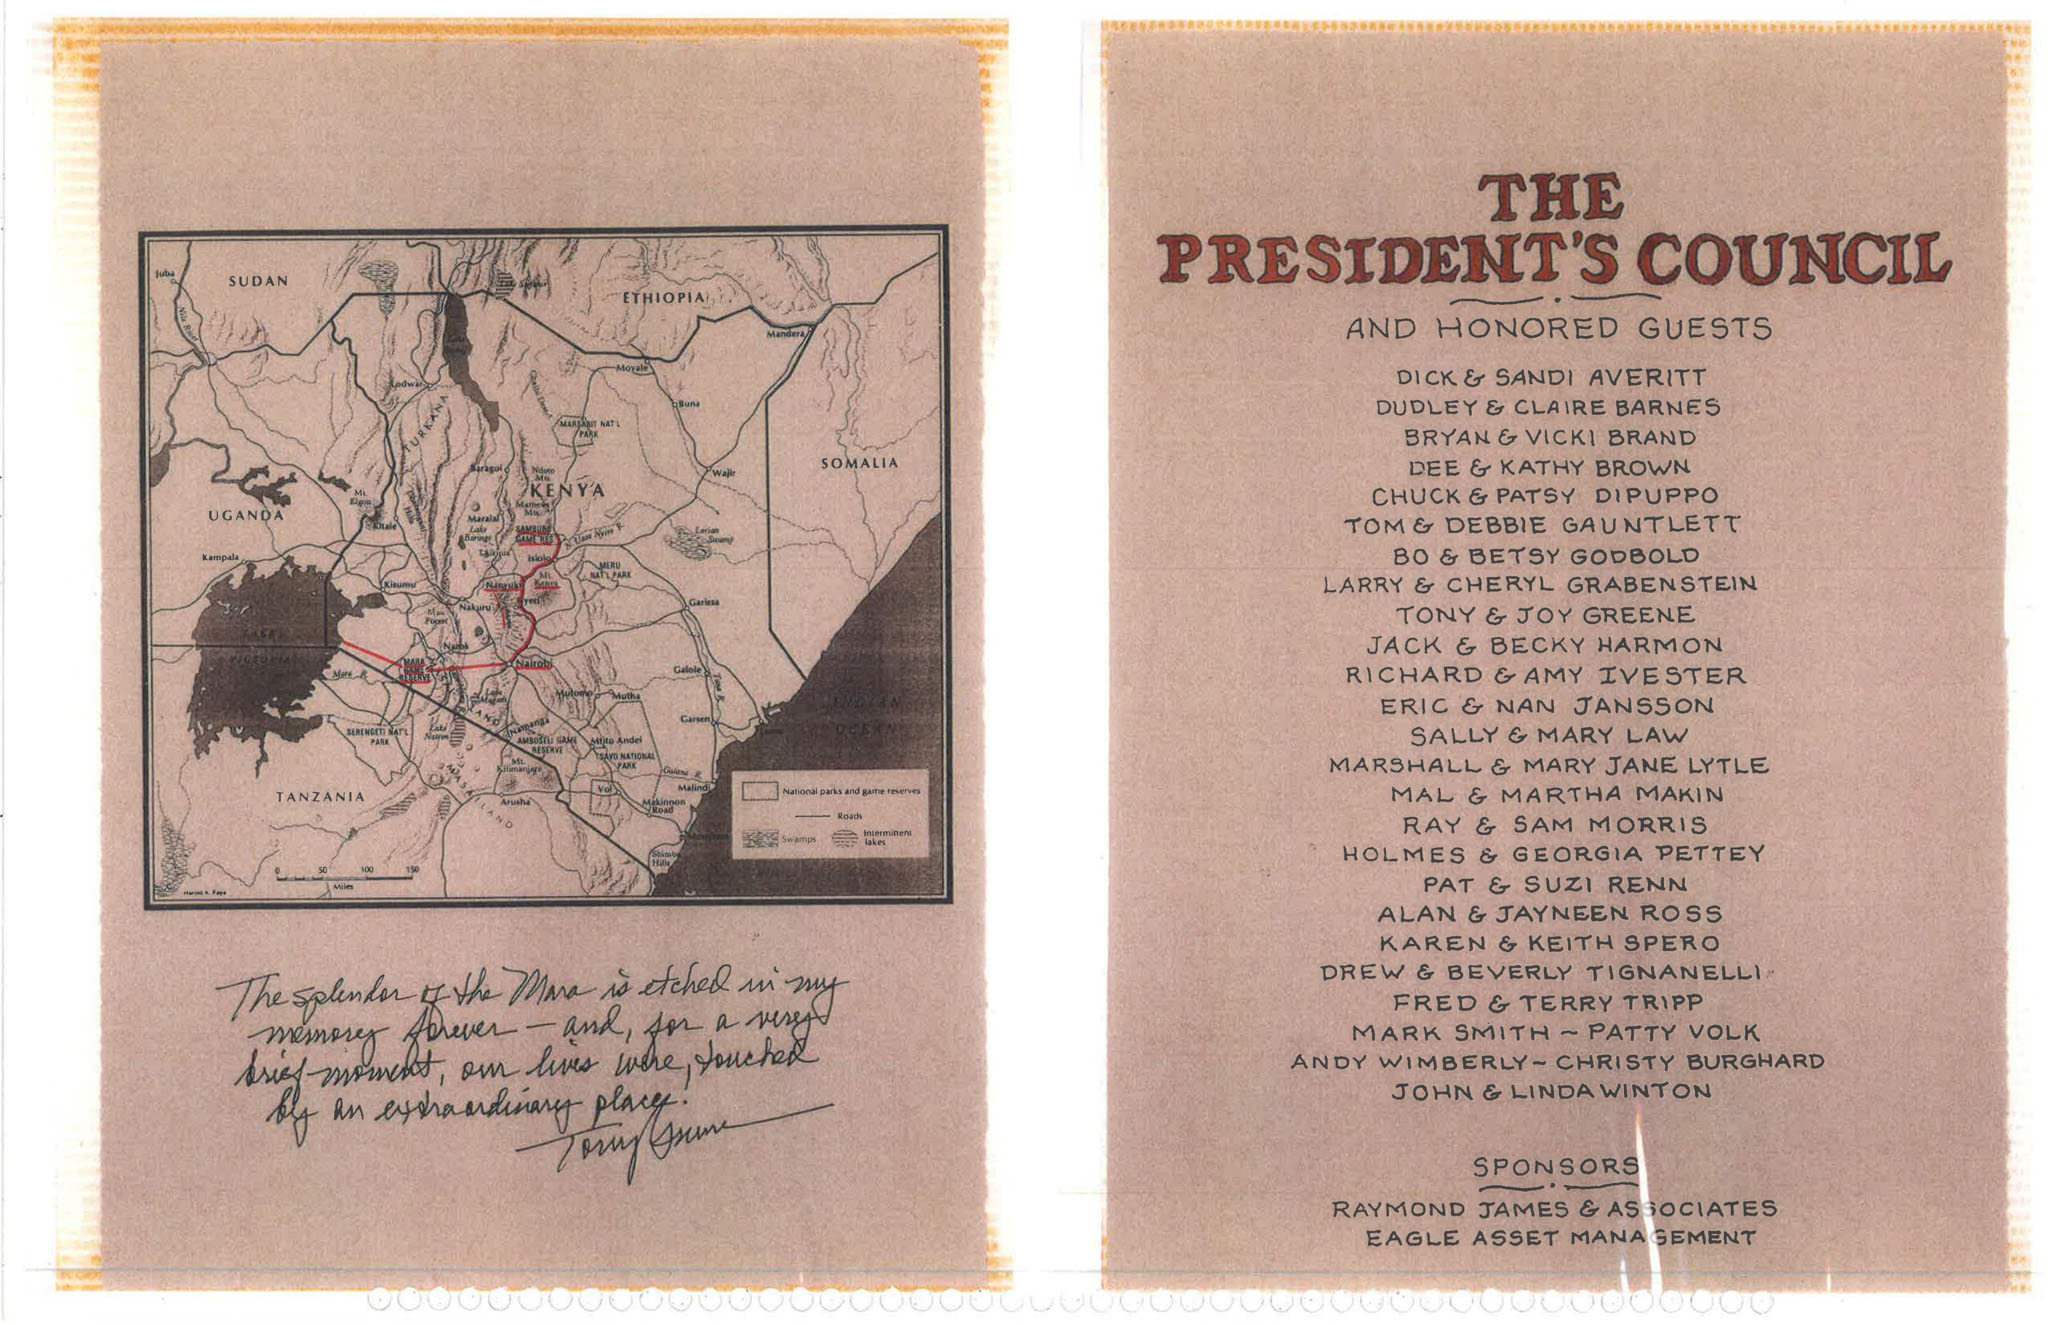 SUDAN
Juba
Nile River
ETHIOPIA
Mandera
Lodwar
Moyale
TURKANA
Buna
MARSABIT NAT'L
PARK
SOMALIA
Baragoi
Ndoto
Mts.
Wajir
KENYA
Mt.
Elgon
Mathews
Mts.
UGANDA
Kitale
Maralal
Lake
Baringo
SAMBURU
GAME RES.
Uaso Nyiro R.
Lorian
Swamp
Laikipia
Isiolo
Kampala
Kisumu
Nanyuki
Mt.
Kenya
MERU
NAT'L PARK
Nyeri
Nakuru
Garissa
Mau
Forest
LAKE
VICTORIA
Narok
MARA
GAME
RESERVE
Nairobi
Mara R.
Galole
Tana R.
Lake
Magadi
Mutomo
Mutha
INDIAN
OCEAN
SERENGETI NAT'L
PARK
Lake
Natron
Namanga
Garsen
AMBOSELI GAME
RESERVE
Mtito Andei
TSAVO NATIONAL
PARK
Mt.
Kilimanjaro
Galana R.
TANZANIA
MASAI LAND
Arusha
Voi
Malindi
Makinnon
Road
National parks and game reserves
Roads
Swamps
Intermittent
lakes
Shimba
Hills
0 50 100 150
Miles
Harold K. Faye
The splendor of the Mara is etched in my
memory forever — and, for a very
brief moment, our lives were, touched
by an extraordinary place.
Tony Greene
THE
PRESIDENT'S COUNCIL
AND HONORED GUESTS
DICK & SANDI AVERITT
DUDLEY & CLAIRE BARNES
BRYAN & VICKI BRAND
DEE & KATHY BROWN
CHUCK & PATSY DIPUPPO
TOM & DEBBIE GAUNTLETT
BO & BETSY GODBOLD
LARRY & CHERYL GRABENSTEIN
TONY & JOY GREENE
JACK & BECKY HARMON
RICHARD & AMY IVESTER
ERIC & NAN JANSSON
SALLY & MARY LAW
MARSHALL & MARY JANE LYTLE
MAL & MARTHA MAKIN
RAY & SAM MORRIS
HOLMES & GEORGIA PETTEY
PAT & SUZI RENN
ALAN & JAYNEEN ROSS
KAREN & KEITH SPERO
DREW & BEVERLY TIGNANELLI
FRED & TERRY TRIPP
MARK SMITH ~ PATTY VOLK
ANDY WIMBERLY ~ CHRISTY BURGHARD
JOHN & LINDA WINTON
SPONSORS
RAYMOND JAMES & ASSOCIATES
EAGLE ASSET MANAGEMENT